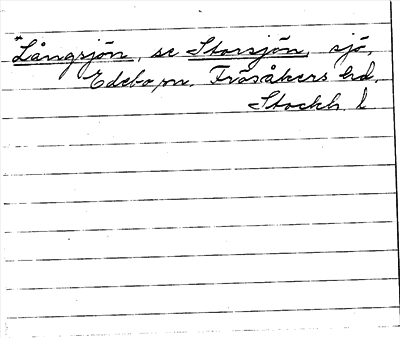 *Långsjön, se Storsjön, sjö,
Edebo sn. Frösåkers hd.
Stockh. l